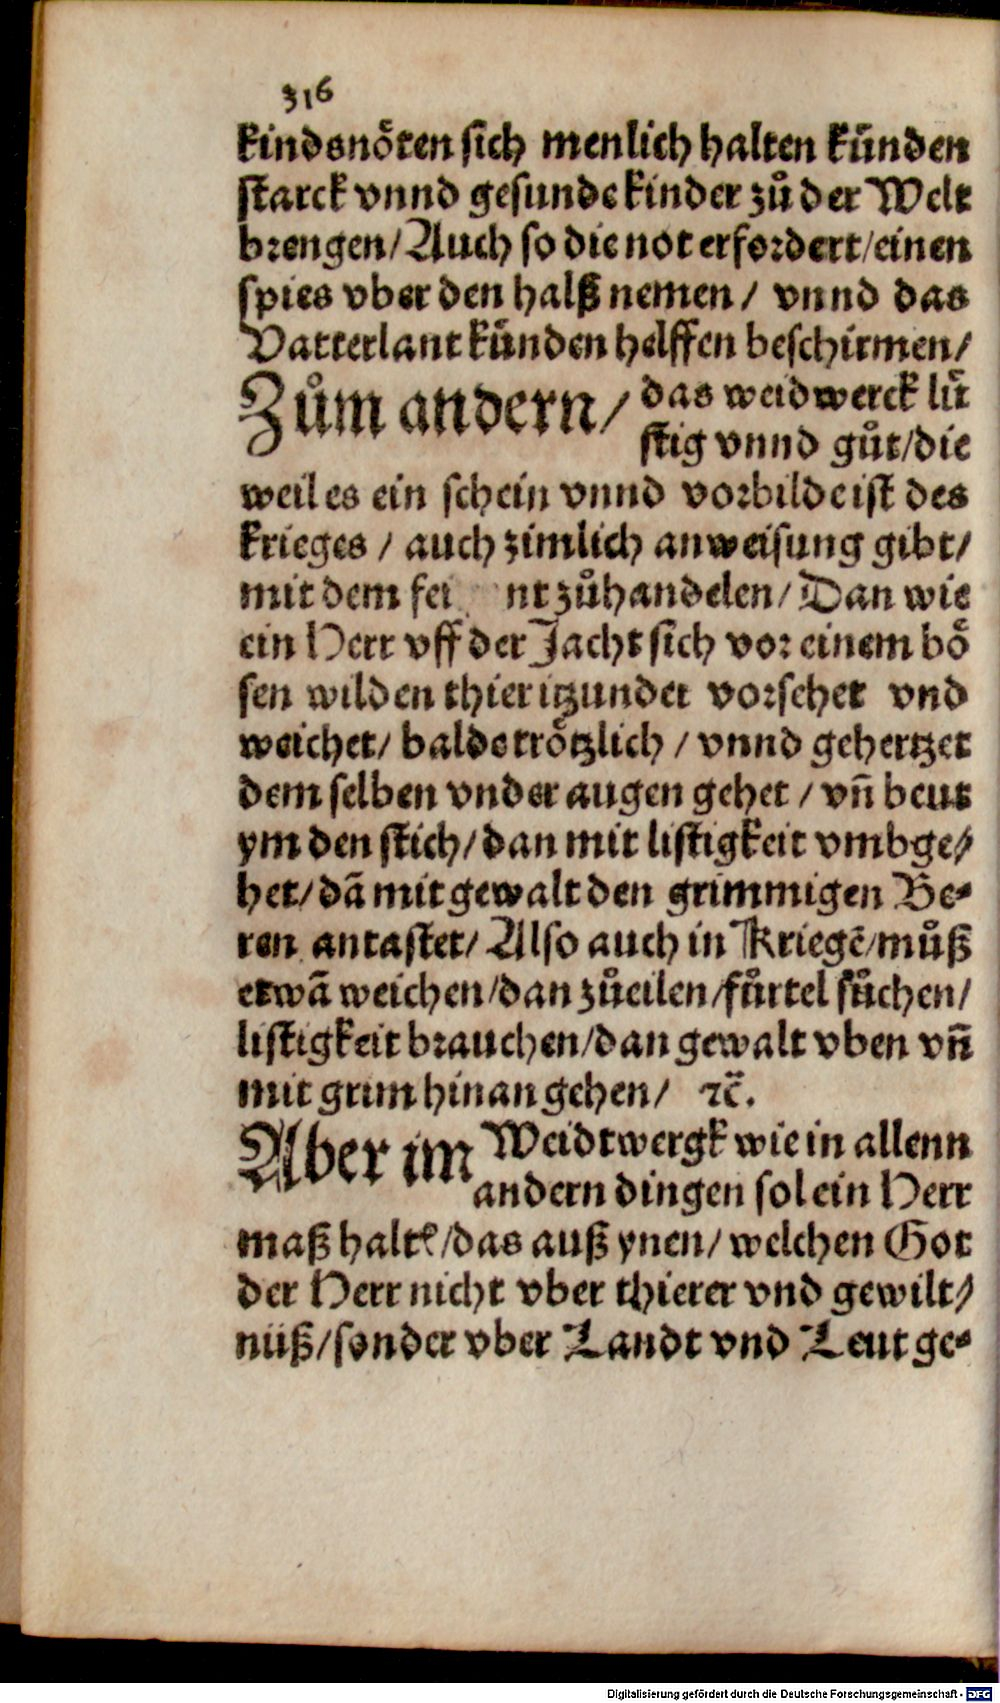 316
kindsnoͤten sich menlich halten kuͤnden
starck vnnd gesunde kinder zuͦ der Welt
brengen/ Auch so die not erfordert/ einen
spies vber den halß nemen/ vnnd das
Vatterlant kuͤnden helffen beschirmen/
Zuͦm andern/ das weidwerck luͤ
stig vnnd guͦt/ die
weil es ein schein vnnd vorbilde ist des
krieges / auch zimlich anweisung gibt/
mit dem fei nt zuͦhandelen/ Dan wie
ein Herr vff der Jacht sich vor einem boͤ
sen wilden thier itzundet vorsehet vnd
weichet/ balde troͤtzlich / vnnd gehertzet
dem selben vnder augen gehet / vn̄ beut
ym den stich/ dan mit listigkeit vmbge/
het/ dā mit gewalt den grimmigen Be-
ren antastet/ Also auch in Kriegē/ muͦß
etwā weichen/ dan zuͦeilen/ fuͤrtel suͦchen/
listigkeit brauchen/ dan gewalt vben vn̄
mit grim hinan gehen/ ⁊c̄.
Aber im Weidtwergk wie in allenn
andern dingen sol ein Herr
maß haltē/ das auß ynen/ welchen Got
der Herr nicht vber thierer vnd gewilt/
nüß/ sonder vber Landt vnd Leut ge-
Digitalisierung gefördert durch die Deutsche Forschungsgemeinschaft - DFG